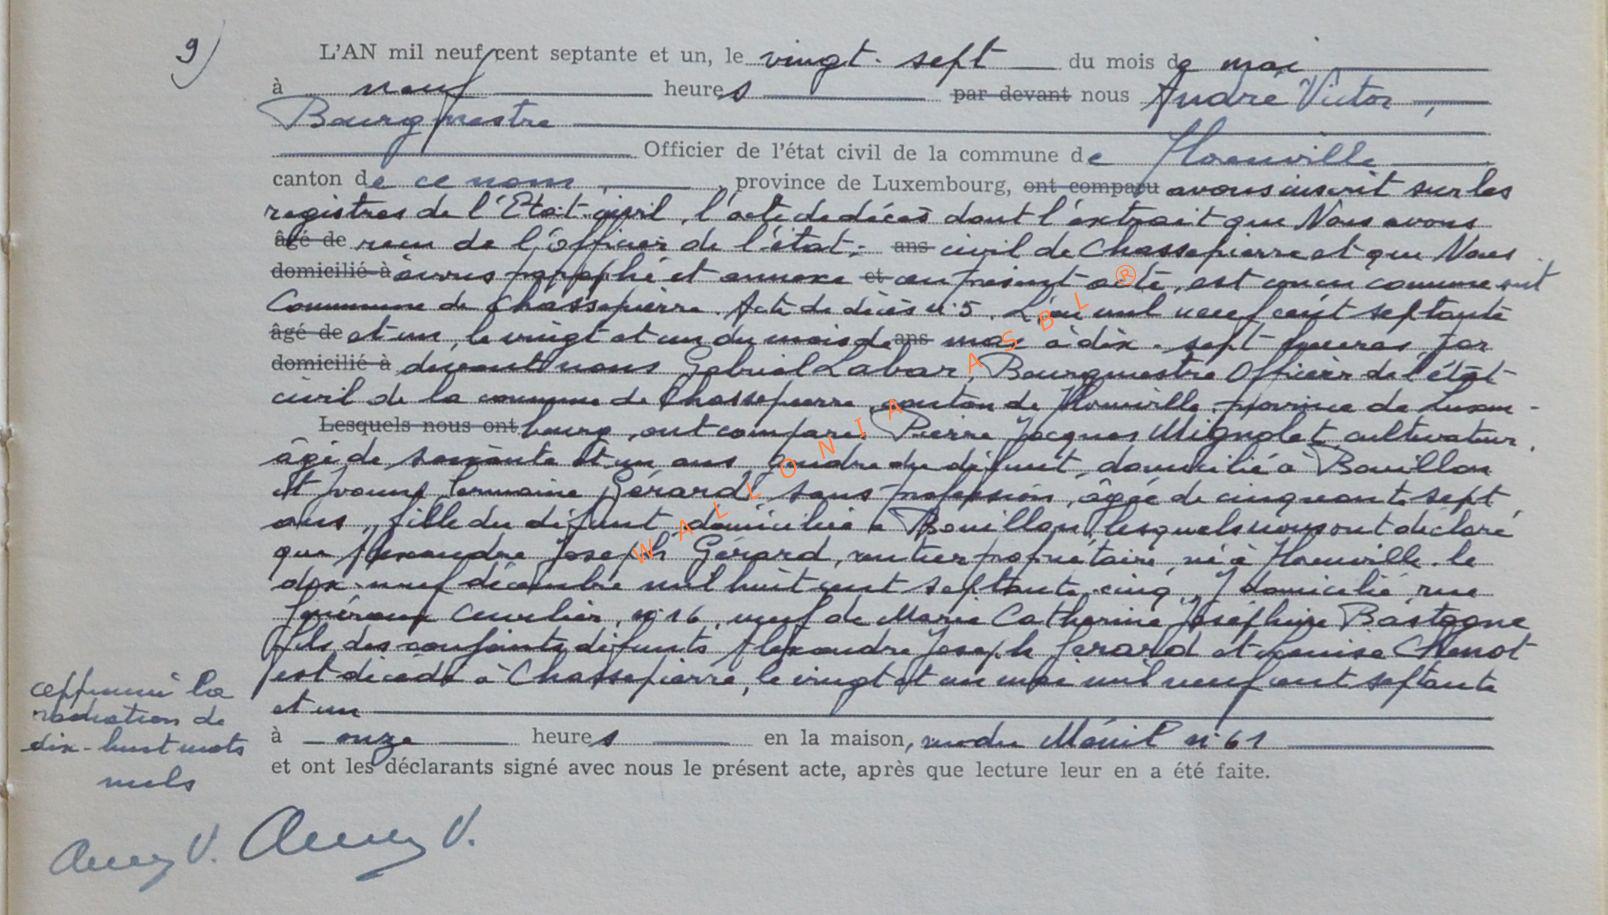 9)
L'AN mil neuf cent septante et un, le vingt-sept du mois de mai
à neuf heures par devant nous André Victor,
Bourgmestre
Officier de l'état civil de la commune de Florenville
canton de ce nom, province de Luxembourg, ont comparu avons inscrit sur les
registres de l'Etat-civil, l'acte de décès dont l'extrait que Nous avons
âgé de recu de l'Officier de l'état- ans civil de Chassepierre et que Nous
domicilié à avons paraphé et annexé et au présent acte, est concu comme suit
Commune de Chassepierre. Acte de décès n° 5. L'an mil neuf cent septante
âgé de et un, le vingt et un du mois de ans mai à dix-sept heures par
domicilié à devant nous Gabriel Labar, Bourgmestre Officier de l'état-
civil de la commune de Chassepierre, canton de Florenville, province de Luxem-
Lesquels nous ont bourg, ont comparu Pierre Jacques Mignolet, cultivateur,
âgé de soixante et un ans, gendre du défunt, domicilié à Bouillon
et Germaine Gérard, sans profession, âgée de cinquante sept
ans, fille du défunt domiciliée à Bouillon, lesquels nous ont déclaré
que Alexandre Joseph Gérard, rentier propriétaire, né à Florenville le
dix-neuf décembre mil huit cent septante-cinq, y domicilié rue
Généraux Cuvelier, n° 16, veuf de Marie Catherine Joséphine Bastogne
fils des conjoints défunts Alexandre Joseph Gérard et Louise Chenot
est décédé à Chassepierre, le vingt et un mai mil neuf cent septante
et un
à onze heures en la maison, rue du Ménil n° 61
et ont les déclarants signé avec nous le présent acte, après que lecture leur en a été faite.
la
radiation de
dix-huit mots
nuls
V. V.
WALLONIA ASBL ®